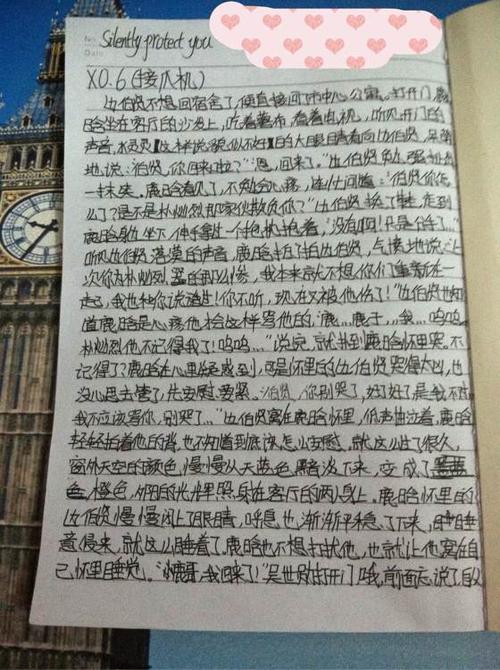 No.
Silently protect you
Date
XO.6(接瓜机)
边伯贤不想回宿舍了,便直接回了市中心公寓。打开门,鹿
晗坐在客厅的沙发上,吃着薯布,看着电视,听见开门的
声音,的大眼睛看向边伯贤,呆萌
地说:"伯贤,你回来啦?""恩,回来了。"边伯贤
一抹笑。鹿晗看见了,不知会心疼,连忙问道:"伯贤你怎
么了?是不是朴灿烈那家伙欺负你?"边伯贤换了鞋,走到
鹿晗身边坐下,伸手拿一个抱枕抱着,"没有啊!只是分手了…"
听见边伯贤落漠的声音,鹿晗拍了拍边伯贤,气愤地说:"上
次你为朴灿烈哭的那么惨,我本来就不想你们重新在一
起,我也和你说过!你不听,现在又被他伤了!"边伯贤也知
道鹿晗是心疼他才会这样骂他的,"鹿…鹿于…我…呜呜,
朴灿烈他不记得我了!呜呜…"说完,就扑到鹿晗怀里哭。不
记得了?鹿晗在心里疑惑到,可是怀里的边伯贤哭得太凶,也
没心思去管了,先安慰要紧。"伯贤,你别哭了,好了好了是我不对
我不应该骂你,别哭了…"边伯贤窝在鹿晗怀里,低声抽泣着,鹿晗
轻轻拍着他的背,也不知道到底该怎么安慰,就这么过了很久。
窗外天空的颜色,慢慢从天蓝色黯淡下来,变成了
色橙色,夕阳的光辉照身在客厅的两人身上。鹿晗怀里的
边伯贤慢慢闭上了眼睛,呼吸也渐渐平稳了下来,睡
意侵来,就这么睡着了。鹿晗也不想打扰他,也就让他窝在自
己怀里睡觉。"小鹿哥,我回来了!"吴世勋打开门哦,前面忘说了